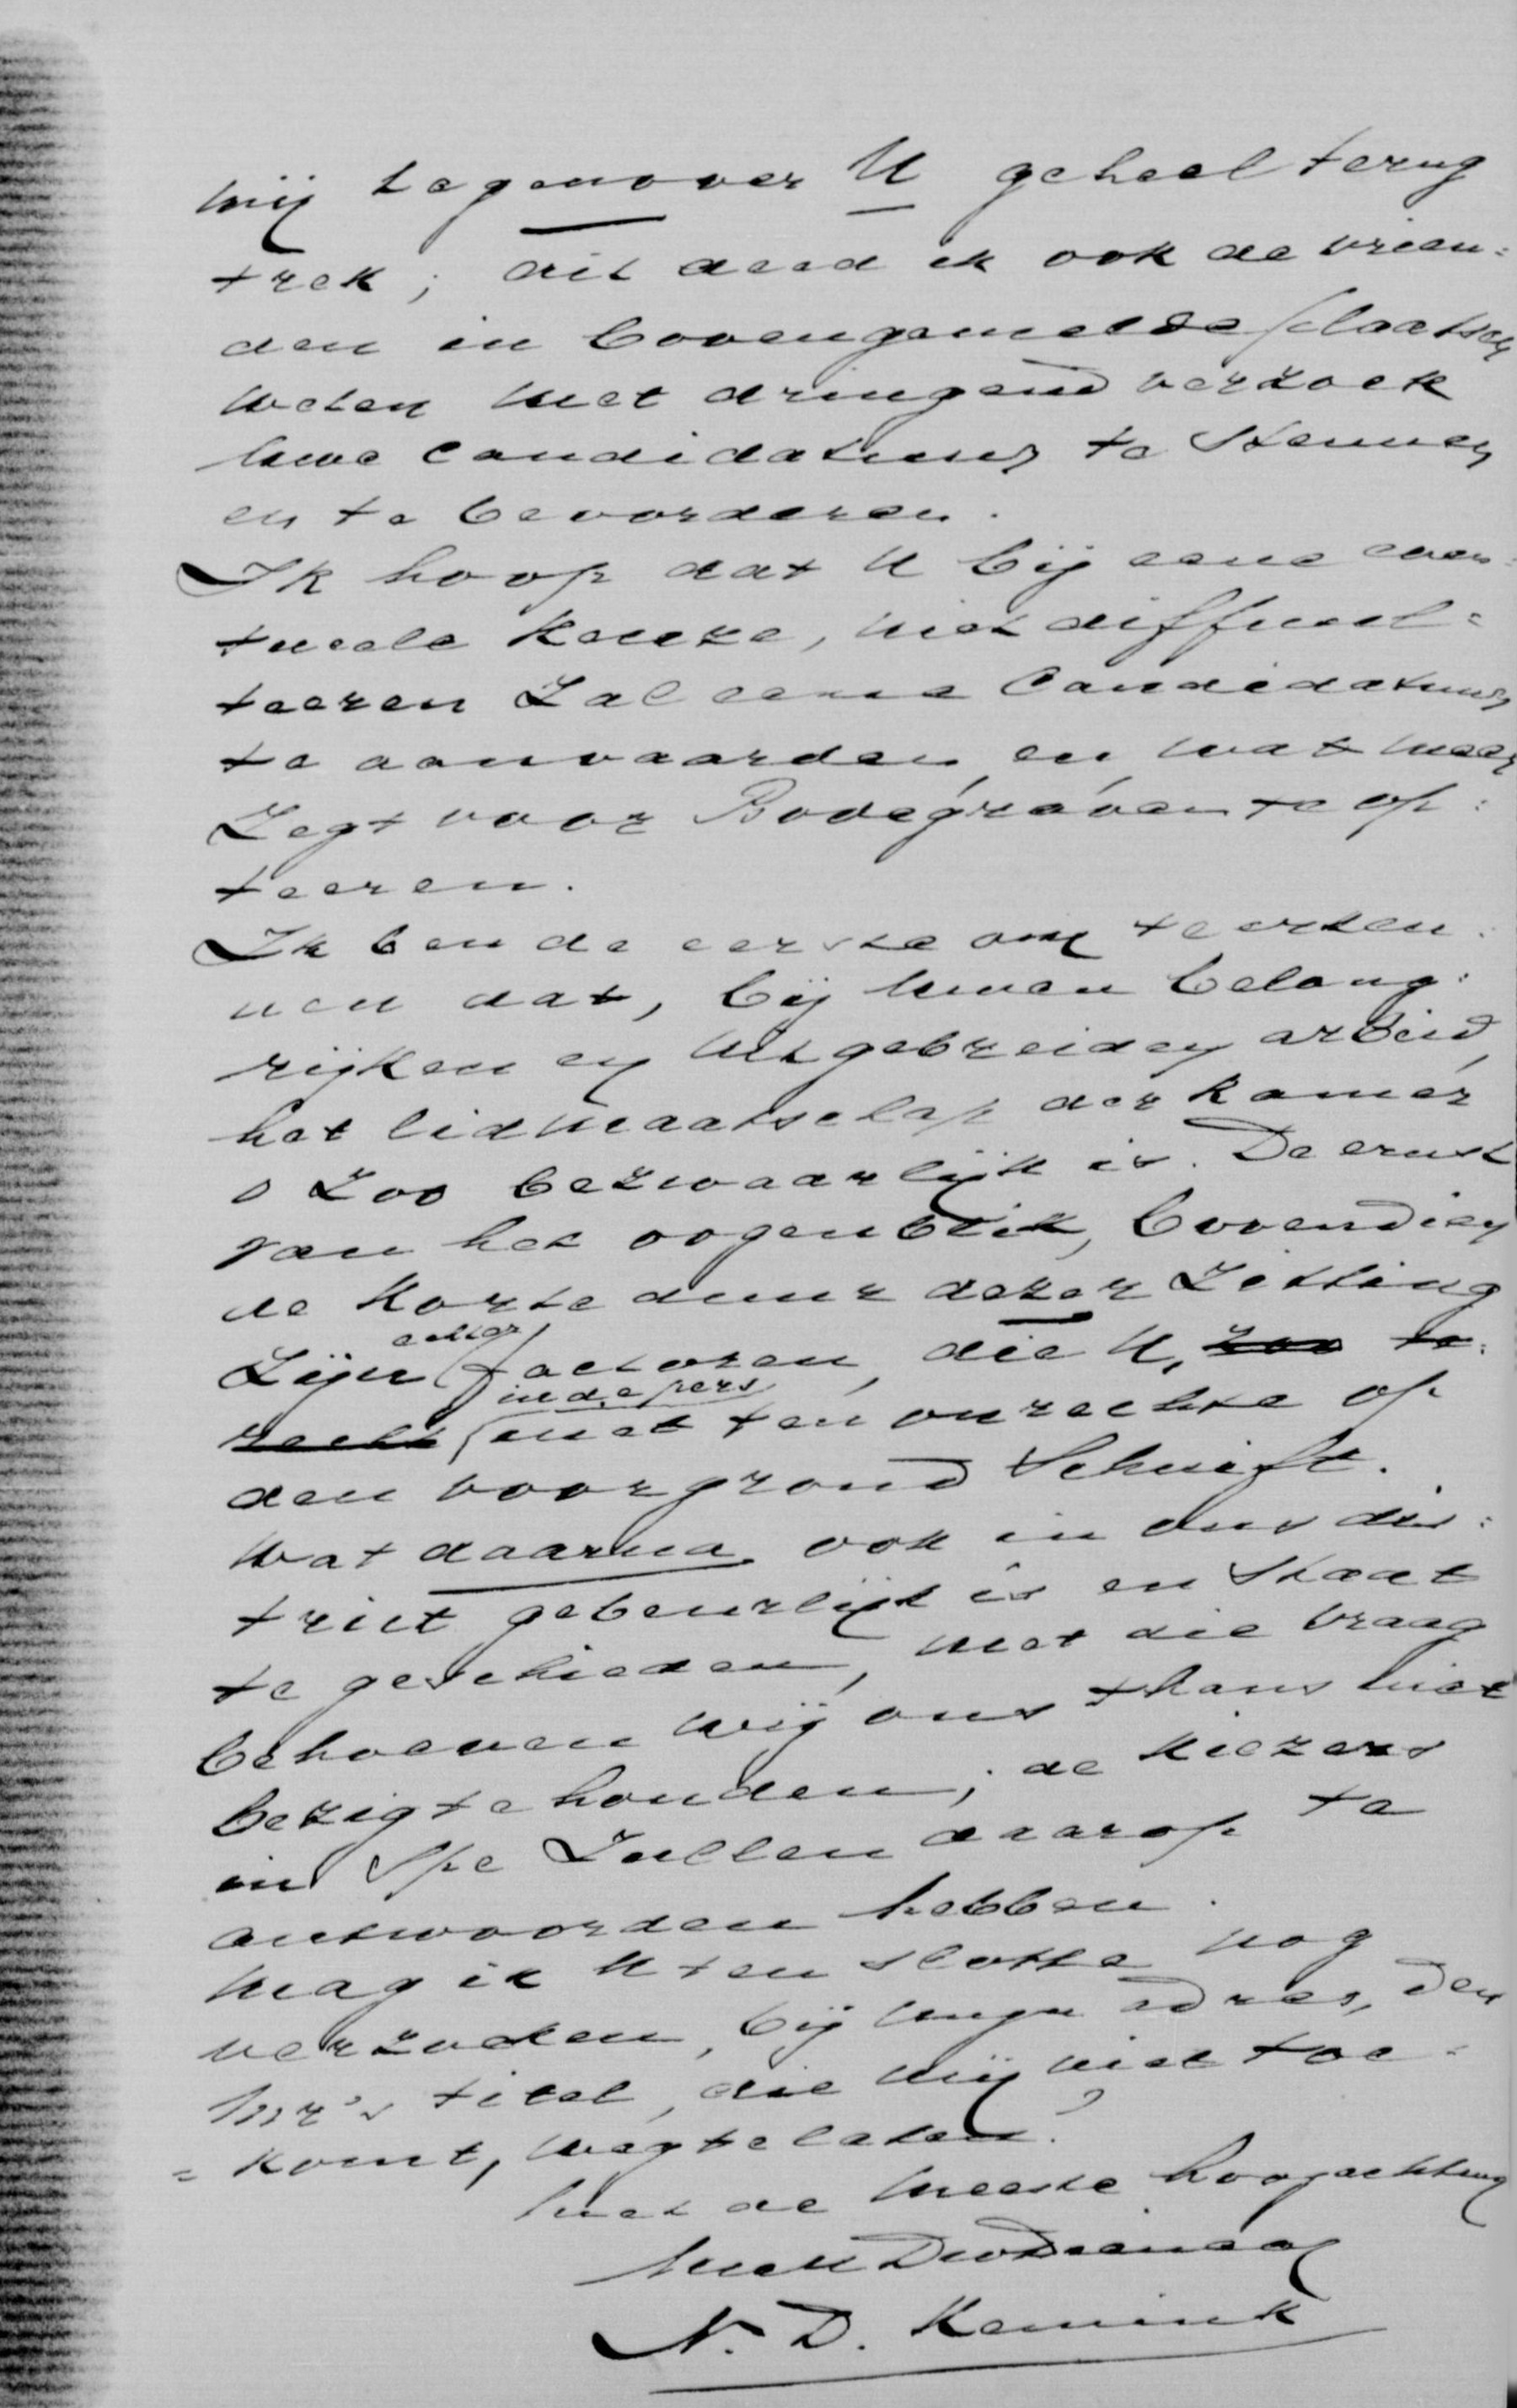 mij tegenover U geheel terug
trek; dit deed ik ook de vrien=
den in bovengemelde plaatsen
weten met dringend verzoek
Uwe candidatuur te steunen
en te bevorderen.
Ik hoop dat U bij eene even=
tueele keuze, niet difficul=
teeren zal eene Candidatuur
te aanvaarden, en, wat meer
zegt voor Bodegraven te op=
teeren.
Ik ben de eerste om te erken=
nen dat, bij Uwen belang=
rijken en uitgebreiden arbeid,
het lidmaatschap der Kamer
o zoo bezwaarlijk is. De ernst
van het oogenblik, bovendien
de korte duur dezer zitting
echter
zijn factoren, die U, zoo te=
in de pers
recht niet ten onrechte op
den voorgrond schuift.
Wat daarna ook in ons dis=
trict gebeurlijk is en staat
te geschieden, met die vraag
behoeven wij ons thans niet
bezig te houden; de kiezers
in spe zullen daarop te
antwoorden hebben.
Mag ik U ten slotte nog
verzoeken, bij mijn adres, den
Mr's titel, die mij niet toe=
=komt, weg te laten?
Met de meeste hoogachting
UwEd Dw Dienaar
N. D. Kemink